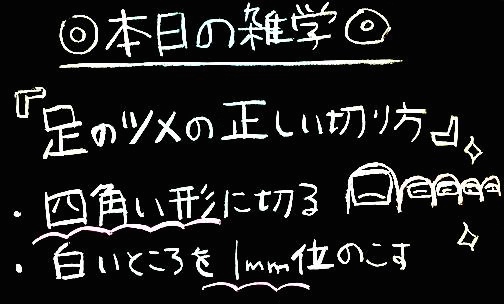 ◎本日の雑学◎
『足のツメの正しい切り方』
・四角い形に切る
・白いところを1mm位のこす